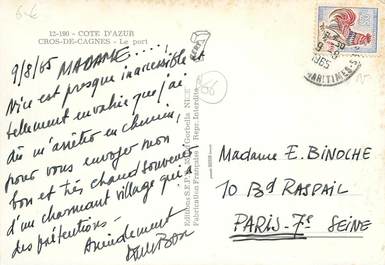 12-190 - COTE D'AZUR
CROS-DE-CAGNES - Le port
9/8/65 MADAME.....!
Nice est presque inaccessible et
tellement envahie que j'ai
dû m'arrêter en chemin,
pour vous envoyer mon
bon et très chaud souvenir
d'un charmant village qui a
des prétentions -
Amicalement
Editions S.E.P.T.
Gorbella NICE
Fabrication Française - Repr. Interdite
1965
MARITIMES
Madame E. BINOCHE
10 Bd RASPAIL
PARIS-7e SEINE